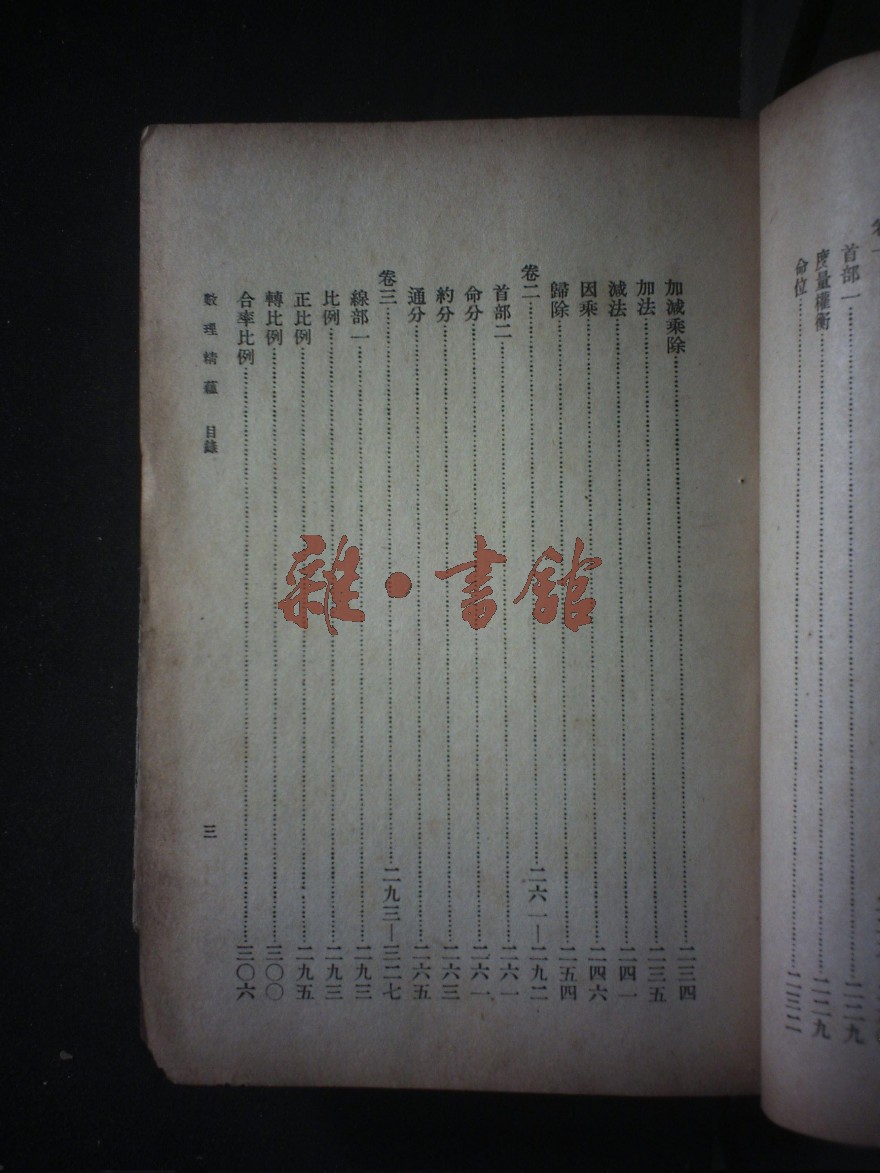 首部一……二二九
度量權衡……二二九
命位……二三二
加減乘除……二三四
加法……二三五
減法……二四一
因乘……二四六
歸除……二五四
卷二……二六一—二九二
首部二……二六一
命分……二六一
約分……二六三
通分……二六五
卷三……二九三—三二七
線部一……二九三
比例……二九三
正比例……二九五
轉比例……三〇〇
合率比例……三〇六
數理精蘊 目錄 三
雜·書館